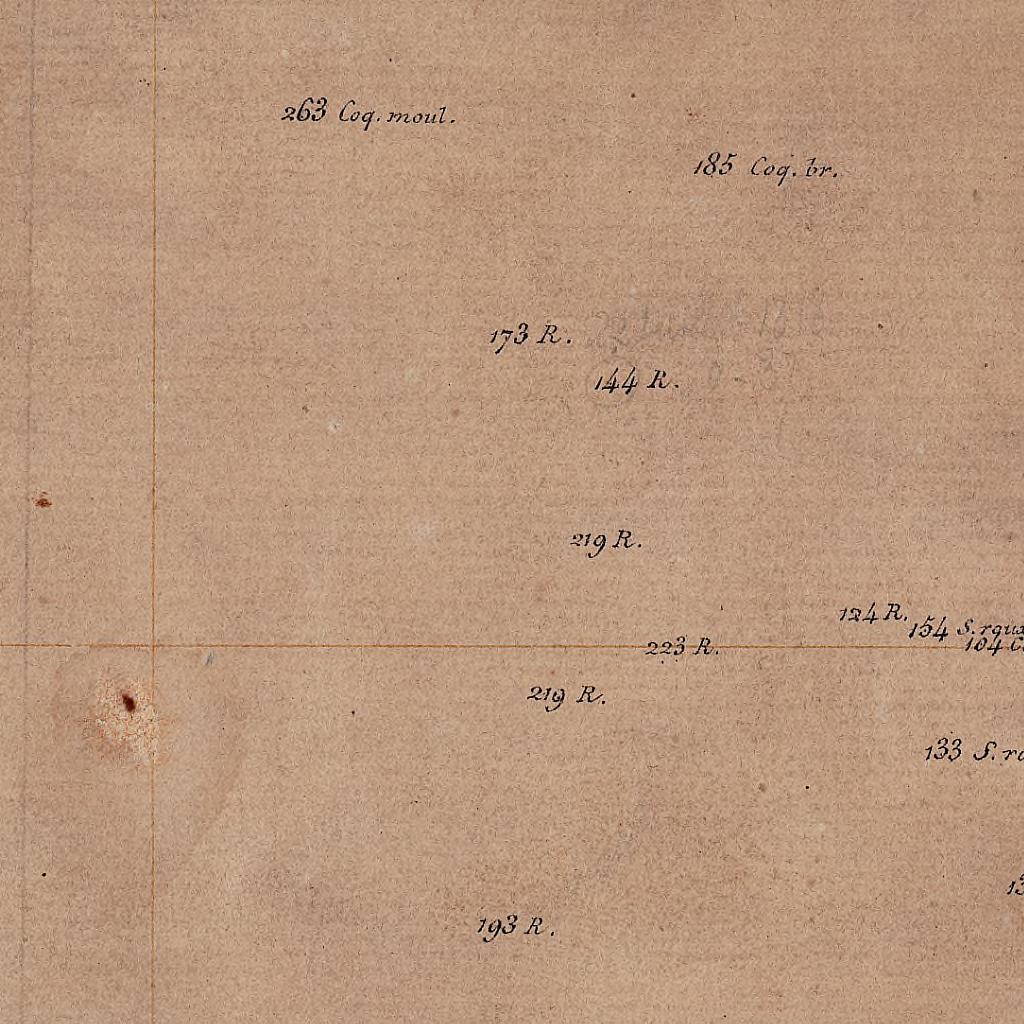 263 Coq. moul.
185 Coq. br.
173 R.
144 R.
219 R.
124 R.
154 S. rqux
223 R.
104 C
219 R.
133 S. r
13
193 R.